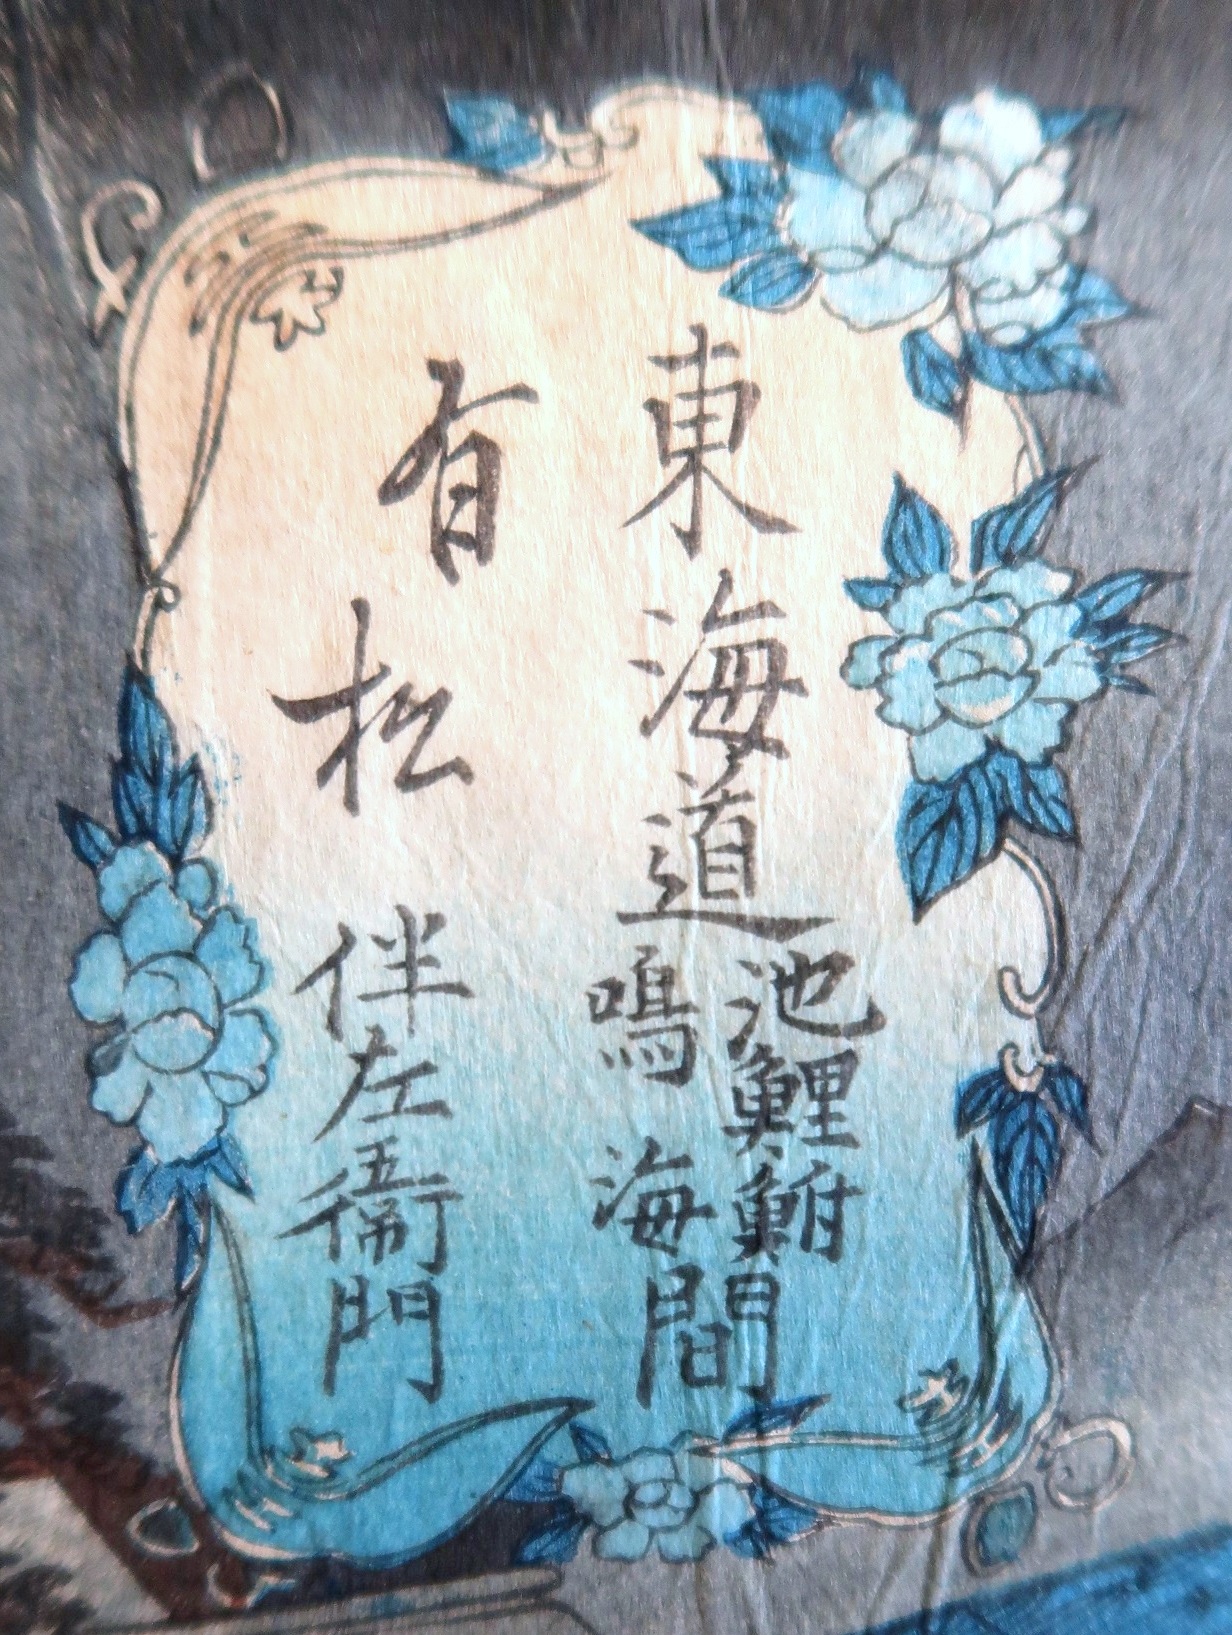 東海道
池鯉鮒
鳴海
間
有松
伴左衞門